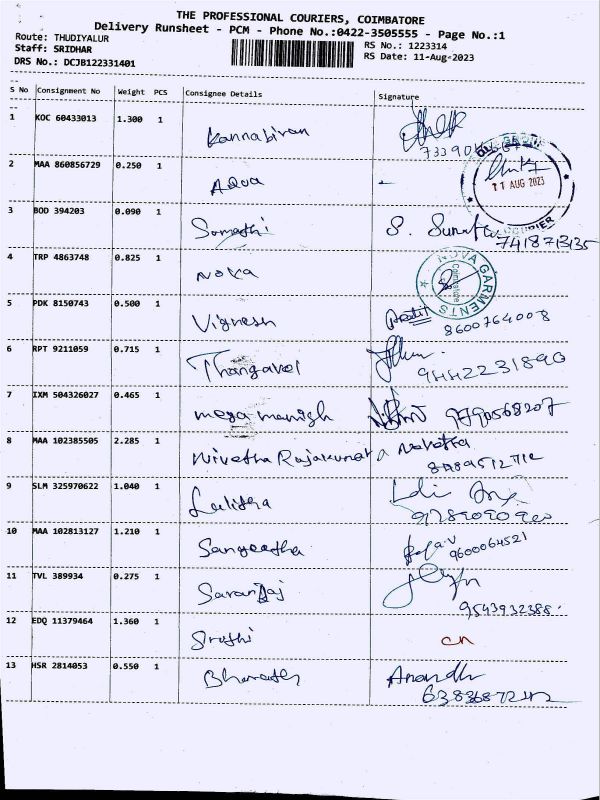 THE PROFESSIONAL COURIERS, COIMBATORE
Delivery Runsheet - PCM - Phone No.:0422-3505555 - Page No.:1
Route: THUDIYALUR
Staff: SRIDHAR
DRS No.: DCJB122331401
RS No.: 1223314
RS Date: 11-Aug-2023
S No Consignment No Weight PCS Consignee Details Signature
1 KOC 60433013 1.300 1 Kannabiran
2 MAA 860856729 0.250 1 Aqua
11 AUG 2023
3 BOD 394203 0.090 1 Sumathi S.
4 TRP 4863748 0.825 1 Nova
NOVA GARMENTS
Coimbatore
5 PDK 8150743 0.500 1 Vignesh
8600764008
6 RPT 9211059 0.715 1 Thangavel
7 IXM 504326027 0.465 1 mega manish
9790568207
8 MAA 102385505 2.285 1 Nivetha Rajakumar
9 SLM 325970622 1.040 1 Lalitha
10 MAA 102813127 1.210 1 Sangeetha
9600064521
11 TVL 389934 0.275 1 Saranraj
9543932388
12 EDQ 11379464 1.360 1 Sruthi cn
13 HSR 2814053 0.550 1 Bharath Anandh